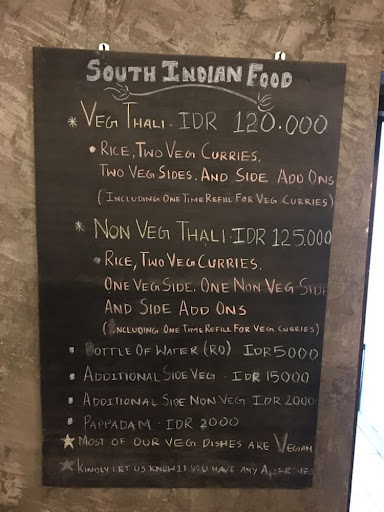 SOUTH INDIAN FOOD
* VEG THALI - IDR 120.000
• RICE, TWO VEG CURRIES,
TWO VEG SIDES, AND SIDE ADD ONS
(INCLUDING ONE TIME REFILL FOR VEG CURRIES)
* NON VEG THALI - IDR 125.000
• RICE, TWO VEG CURRIES,
ONE VEG SIDE, ONE NON VEG SIDE
AND SIDE ADD ONS
(INCLUDING ONE TIME REFILL FOR VEG CURRIES)
• BOTTLE OF WATER (RO) IDR 5000
• ADDITIONAL SIDE VEG - IDR 15000
• ADDITIONAL SIDE NON VEG IDR 2000
• PAPPADAM - IDR 2000
★ MOST OF OUR VEG DISHES ARE VEGAN
★ KINDLY LET US KNOW IF YOU HAVE ANY ALLERGIES